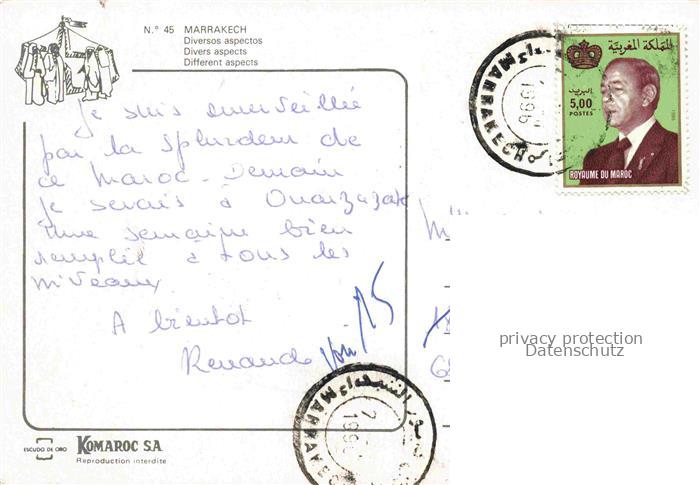 N.º 45 MARRAKECH
Diversos aspectos
Divers aspects
Different aspects
Je suis émerveillée
par la splendeur de
ce Maroc. Demain
je serais à Ouarzazate
Une semaine bien
remplie à tous les
niveaux
A bientot
Renande
ESCUDO DE ORO KOMAROC S.A.
Reproduction interdite
MARRAKECH
1996
المملكة المغربية
البريد
5,00
POSTES
ROYAUME DU MAROC
privacy protection
Datenschutz
MARRAKECH